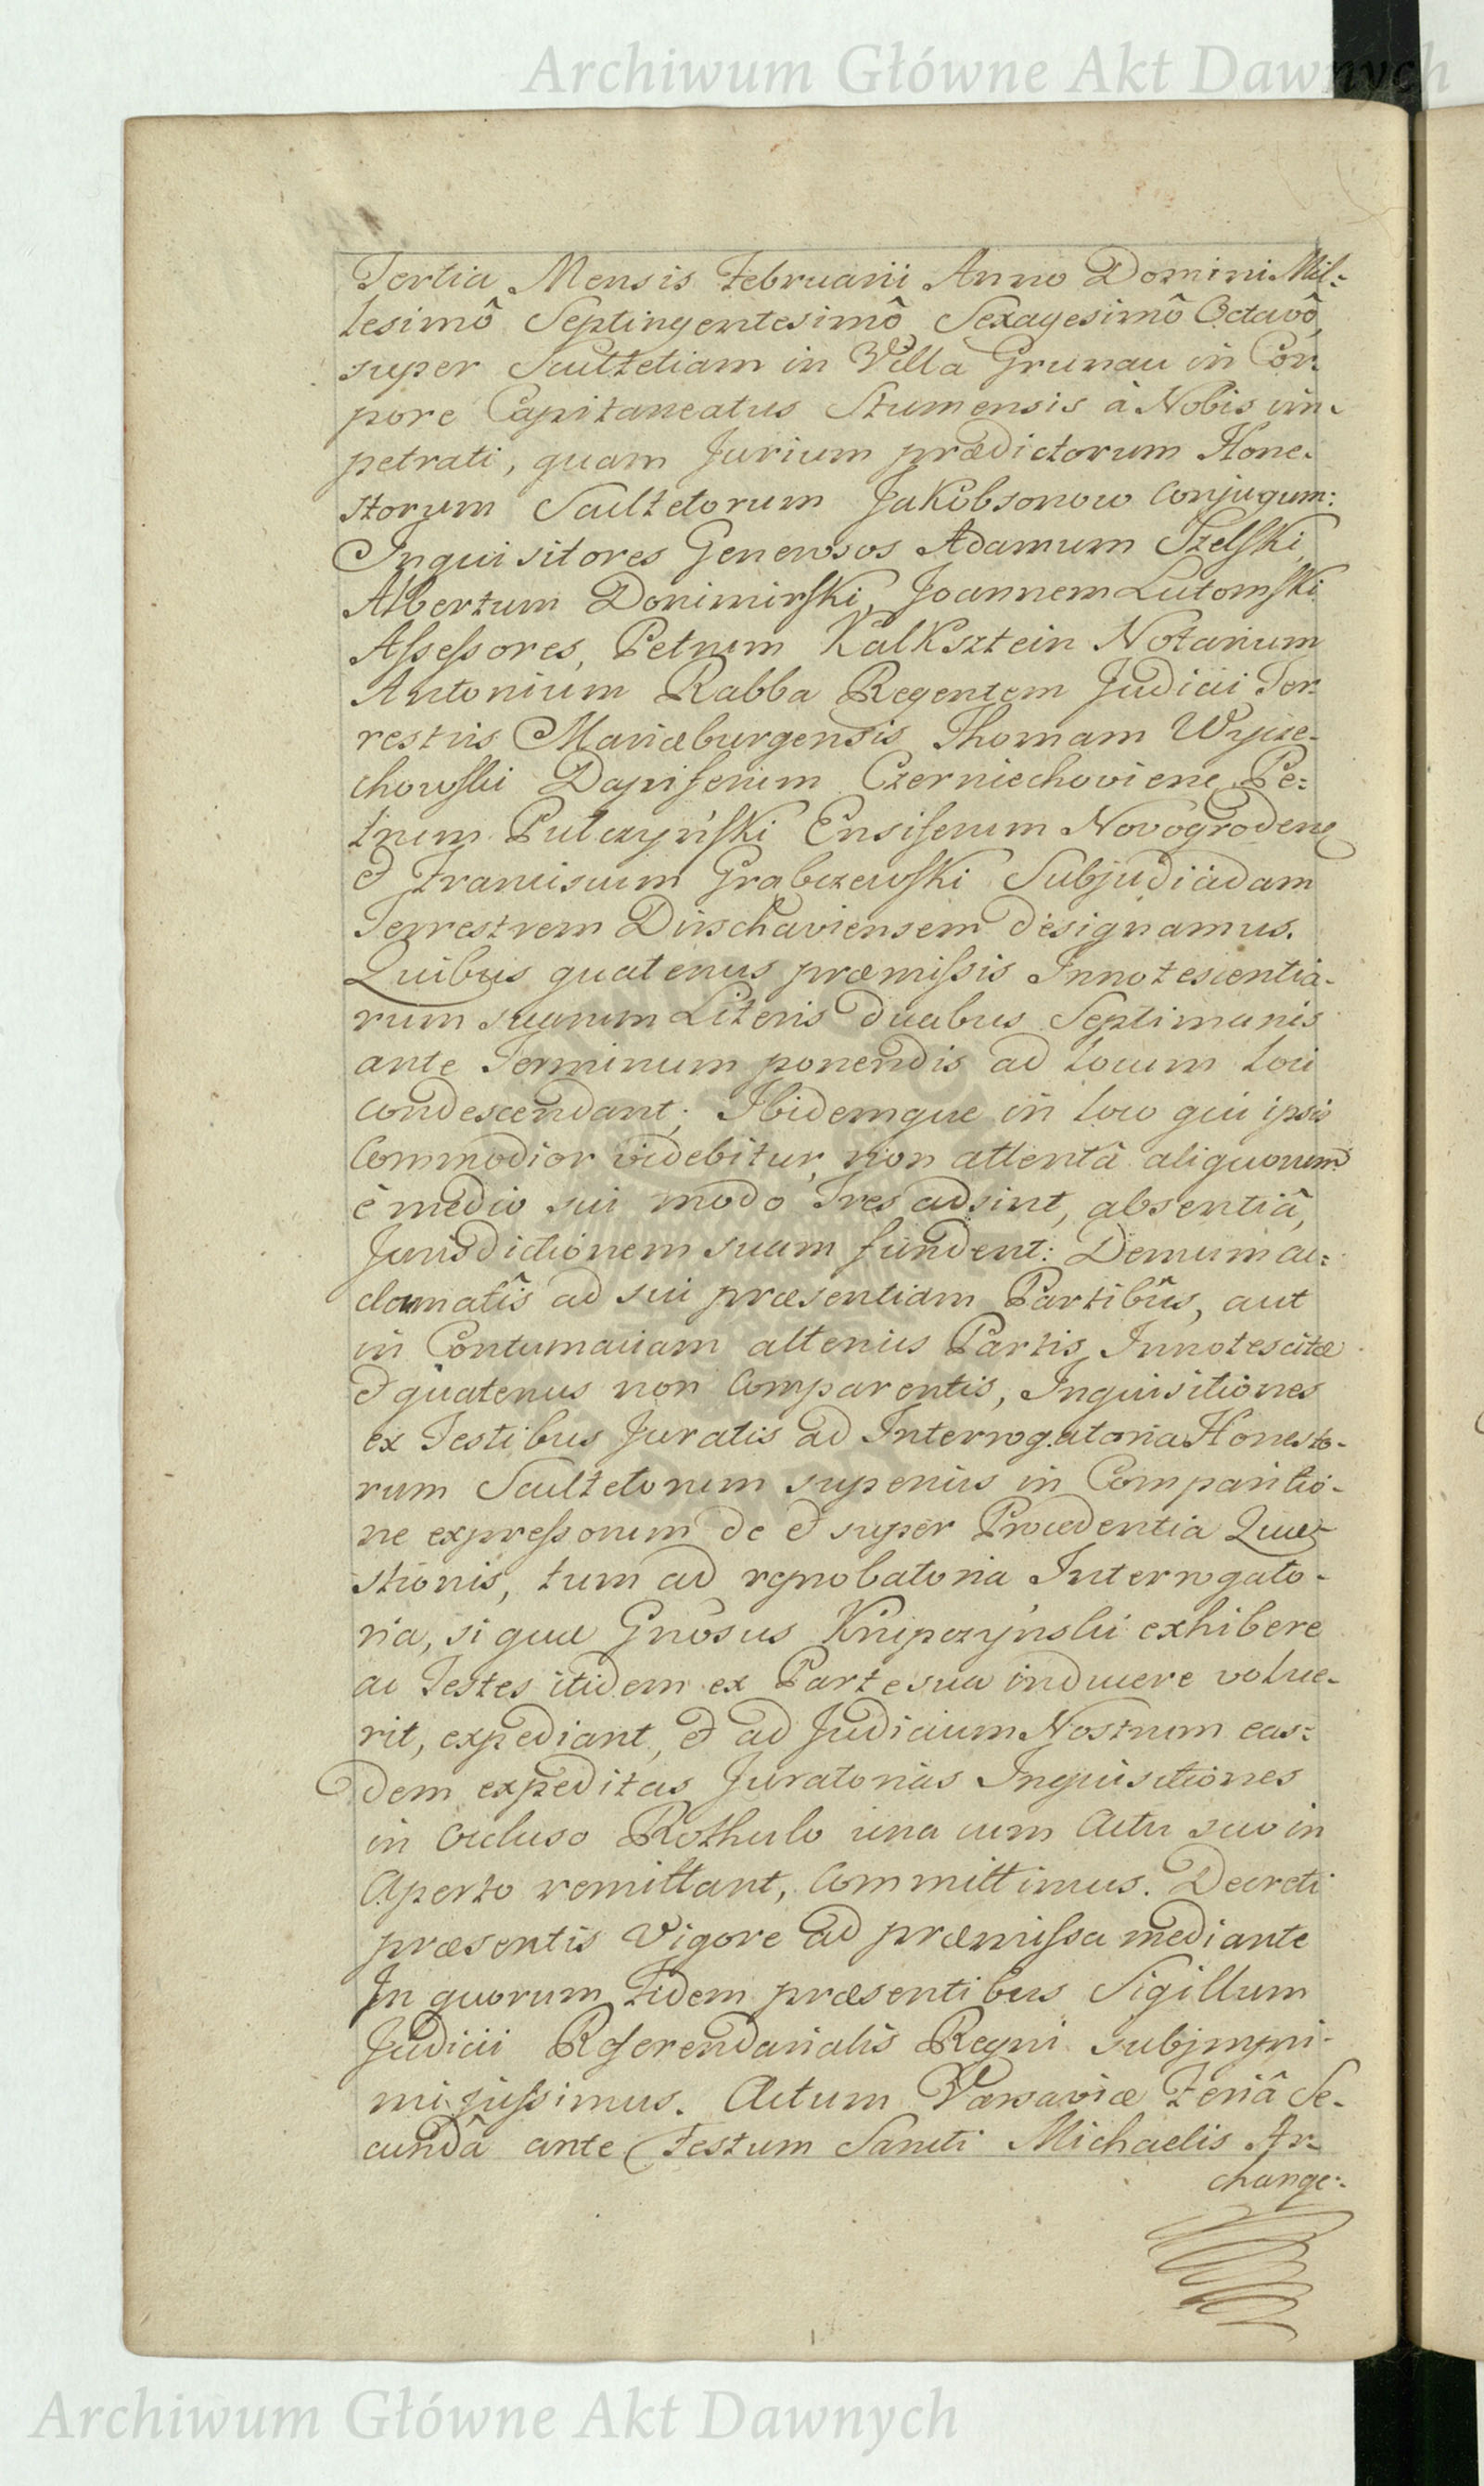 Archiwum Główne Akt Dawnych
Tertia Mensis Februarii Anno Domini Mil-
lesimô Septingentesimô Sexagesimô Octavô
super Scultetiam in Villa Grunau in Cor-
pore Capitaneatus Stumensis à Nobis im-
petrati, quam Jurium prædictorum Hone-
storum Scultetorum Jakobsonow Conjugum:
Inquisitores Generosos Adamum Szelski,
Albertum Donimirski, Joannem Lutomski
Assessores, Petrum Kalksztein Notarium
Antonium Rabba Regentem Judicii Ter-
restris Mariæburgensis Thomam Wycze-
chowski Dapiferum Czerniechoviene, Pe-
trum Pulczyński Ensiferum Novogrodene
et Franciscum Grabczewski Subjudicem
Terrestrem Dirschaviensem designamus.
Quibus quatenus præmissis Innotescentia-
rum suarum Literis duabus Septimanis
ante Terminum ponendis ad locum loci
condescendant; Ibidemque in loco qui ipsis
Commodior videbitur, non attentâ aliquorum
è medio sui modo Tres adsint, absentiâ,
Jurisdictionem suam fundent: Demum ac-
clamatis ad sui præsentiam Partibûs, aut
in Contumaciam alterius Partis Innotescitæ
et quatenus non Comparentis, Inquisitiones
ex Testibus Juratis ad Interrogatoria Honesto-
rum Scultetorum superius in Comparitio-
ne expressorum de et super Procedentia Quæ-
stionis, tum ad reprobatoria Interrogato-
ria, si quæ Gnosus Knipczyński exhibere
ac Testes itidem ex Parte sua inducere volue-
rit, expediant, et ad Judicium Nostrum eas-
dem expeditas Juratorias Inquisitiones
in occluso Rothulo una cum Actu suo in
Aperto remittant, Committimus. Decreti
præsentis Vigore ad præmissa mediante
In quorum Fidem præsentibus Sigillum
Judicii Referendarialis Regni subimpri-
mi jussimus. Actum Varsaviæ Feriâ Se-
cundâ ante Festum Sancti Michaelis Ar-
change-
Archiwum Główne Akt Dawnych